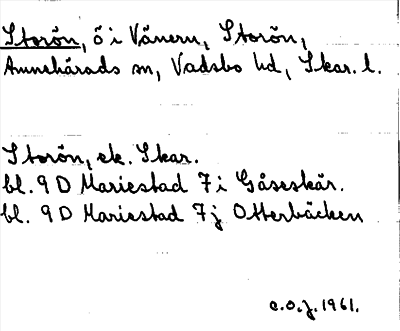 Storön, ö i Vänern, Storön,
Amnehärads sn, Vadsbo hd, Skar. l.
Storön, ek. Skar.
bl. 9 D Mariestad 7 i Gåseskär.
bl. 9 D Mariestad 7 j Otterbäcken
C.O.J. 1961.